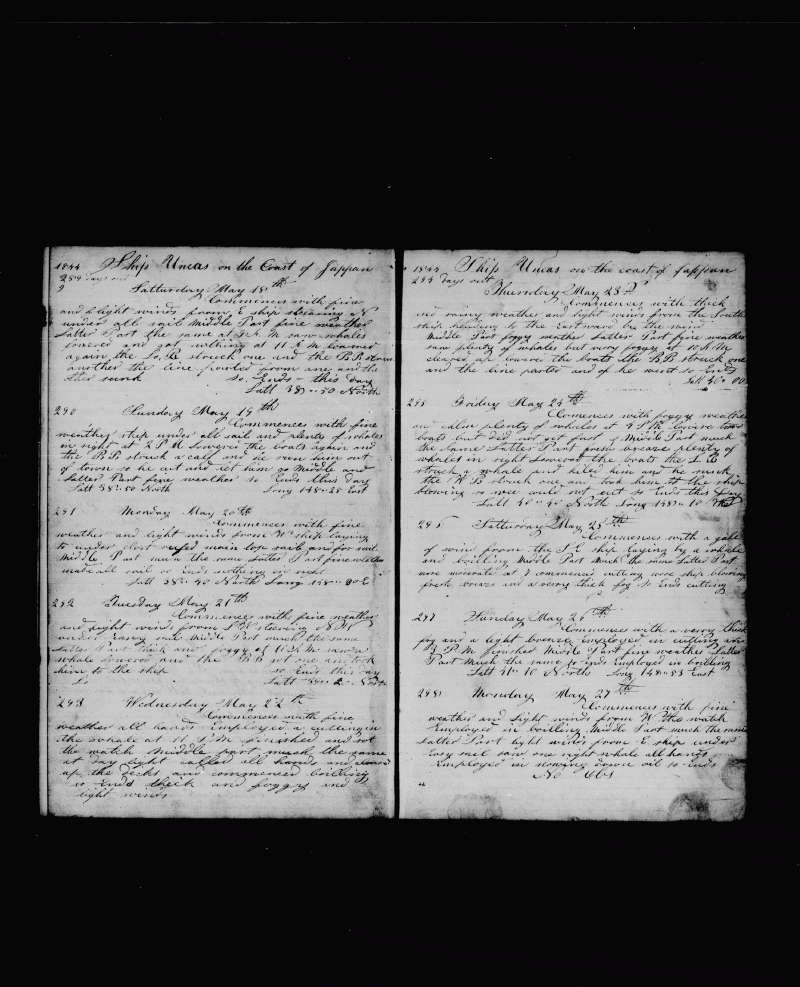 1844 Ship Uncas on the Coast of Jappan
289 days out
Satturday May 18th
Commences with fine
and light winds from E ship stearing N
under all sail Middle Part fine weather
Latter Part the same at A M saw whales
lowered and got nothing at 11 A M lowered
again the Lo, B struck one and the B B struck
another the line parted from one and the
other sunk so Ends this day
Latt 38 - 50 North
290 Sunday May 19th
Commences with fine
weather ship under all sail and plenty of whales
in sight at 2 P M Lowered the boats again and
the B B struck a calf and he run him out
of town so he cut and let him go Middle and
Latter Part fine weather so Ends this day
Latt 38 - 50 North Long 148 - 28 East
291 Monday May 20th
Commences with fine
weather and light winds from W ship laying
to under close reefed main top sail and for sail
Middle Part much the same Latter Part fine weather
made all sail so Ends nothing in sight
Latt 38 - 40 North Long 148 - 00 E
292 Tuesday May 21th
Commences with fine weather
and light winds from S W steering N N
under easy sail Middle Part much the same
Latter Part thick and foggy at 11 A M saw a
whale lowered and the B B got one and took
him to the ship so Ends this day
Lo Latt North
293 Wednesday May 22th
Commences with fine
weather all hands Employed a cutting in
the whale at P M finished and set
the watch Middle part much the same
at day light called all hands and
up the decks and commenced boilling
so Ends thick and foggy and
light winds
1844 Ship Uncas on the coast of Jappan
294 days out
Thursday May 23d
Commences with thick
rainy weather and light winds from the South
ship heading to the Eastward by the wind
Middle Part foggy weather Latter Part fine weather
saw plenty of whales but very foggy at 10 A M
cleared up lowered the boats the B B struck one
and the line parted and of he went so Ends
Latt 40 - 00
295 Friday May 24th
Comences with foggy weather
and calm plenty of whales at P M lowered
boats but did not get fast Middle Part much
the same Latter Part fresh breeze plenty of
whales in sight lowered the boats the L B
struck a whale and kiled him and he sunk
the W B struck one and took him to the ship
blowing so wee could not cut so Ends this Day
Latt 40 - 40 North Long 148 - 10
296 Satturday May 25th
Commences with a gale
of wind from the S E ship laying by a whale
and boilling Middle Part much the same Latter Part
more moderate at 7 commenced cutting wore ship blowing
fresh breaze and a very thick fog so Ends cutting
297 Sunday May 26th
Commences with a very thick
fog and a light breeze imployed in cutting at
3 P M finished Middle Part fine weather Latter
Part Much the same so Ends Imployed in boilling
Latt 41 - 10 North Long 148 - 53 East
298 Monday May 27th
Commences with fine
weather and light winds from W the watch
Employed in boilling Middle Part much the same
Latter Part light winds from E ship under
Easy sail saw one right whale all hands
Employed in stowing down oil so Ends
No Obs